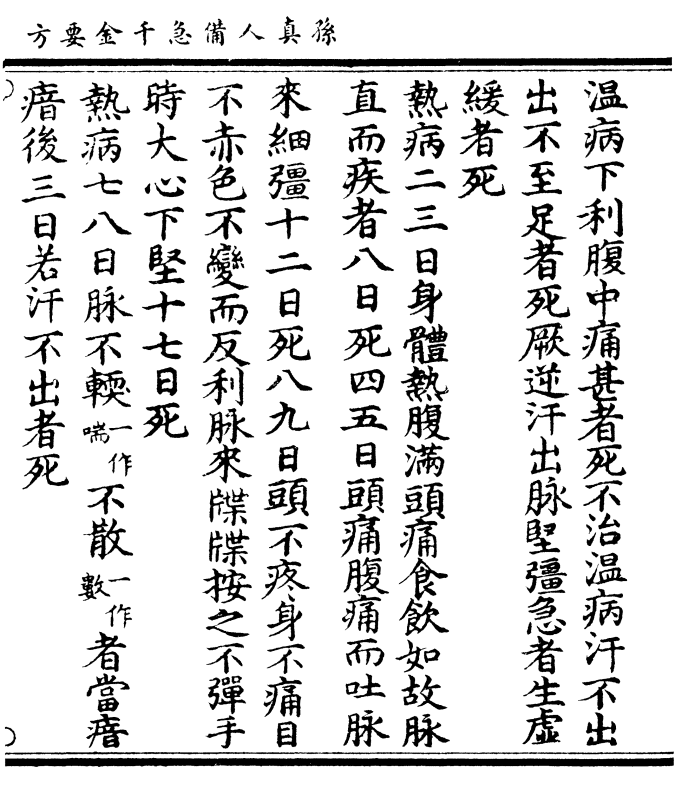 孫真人備急千金要方
温病下利腹中痛甚者死不治温病汗不出
出不至足者死厥逆汗出脉堅彊急者生虚
緩者死
熱病二三日身體熱腹滿頭痛食飲如故脉
直而疾者八日死四五日頭痛腹痛而吐脉
來細彊十二日死八九日頭不疼身不痛目
不赤色不變而反利脉來牒牒按之不彈手
時大心下堅十七日死
熱病七八日脉不輭一作喘不散一作數者當瘖
瘖後三日若汗不出者死